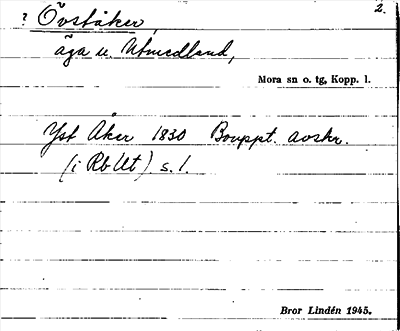 ? Övståker, 2.
äga u. Utmedland,
Mora sn o. tg, Kopp. l.
Yst Åker 1830 Bouppt. avskr.
(i Rb Ut) s. 1.
Bror Lindén 1945.